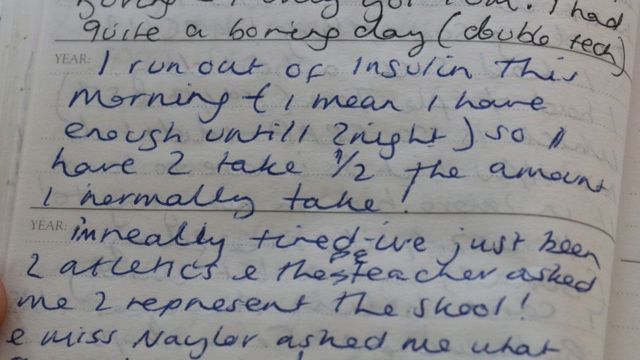 only got 10m. I had
quite a boring day (double tech)
YEAR:
I run out of Insulin This
morning ( I mean I have
enough untill 2night) so I
have 2 take 1/2 the amount
I normally take!
YEAR:
im really tired-ive just been
2 atletics e the PE teacher asked
me 2 represent the skool!
e miss Naylor asked me what